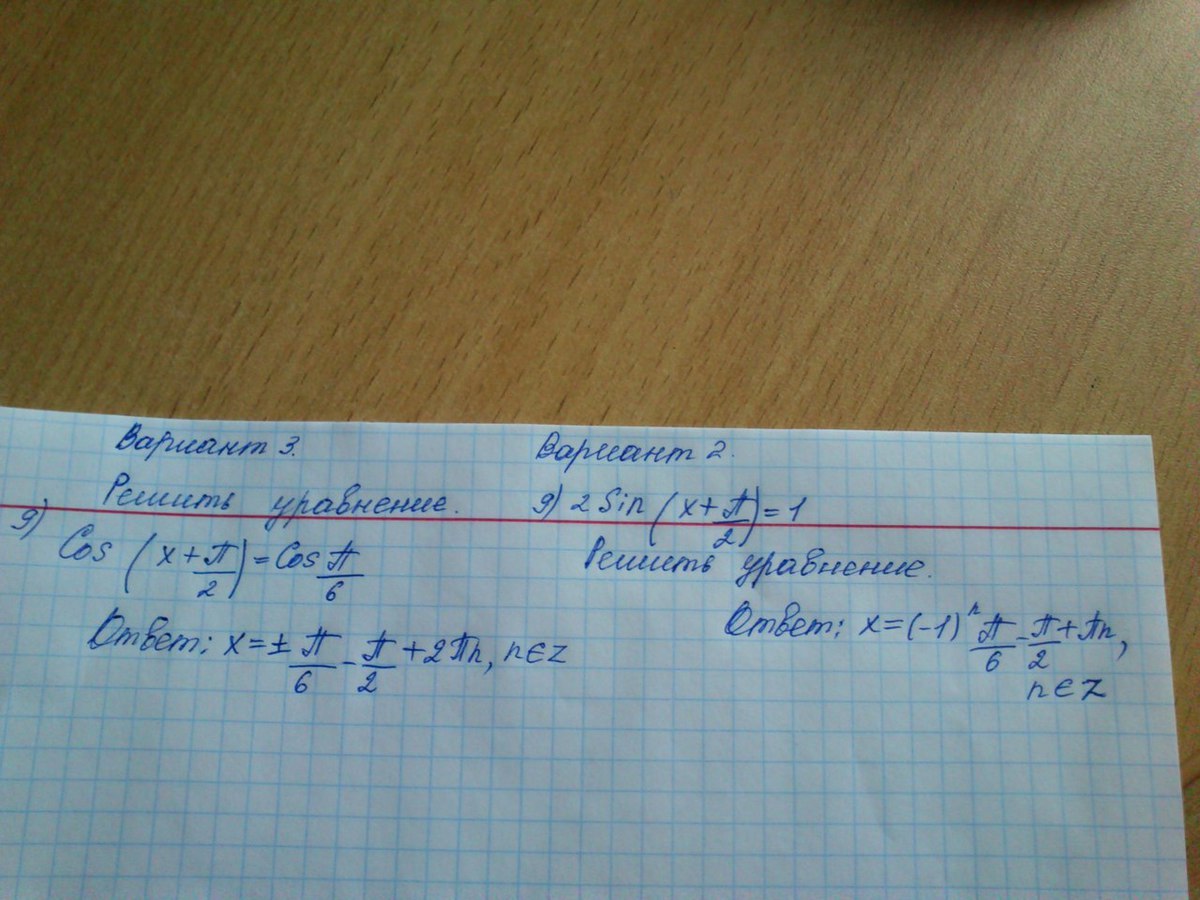 Вариант 3.
Решить уравнение.
9) Cos (x + π/2) = Cos π/6
Ответ: x = ± π/6 - π/2 + 2πn, n∈Z
Вариант 2.
9) 2 Sin (x + π/2) = 1
Решить уравнение.
Ответ: x = (-1)ⁿ π/6 - π/2 + πn,
n∈Z